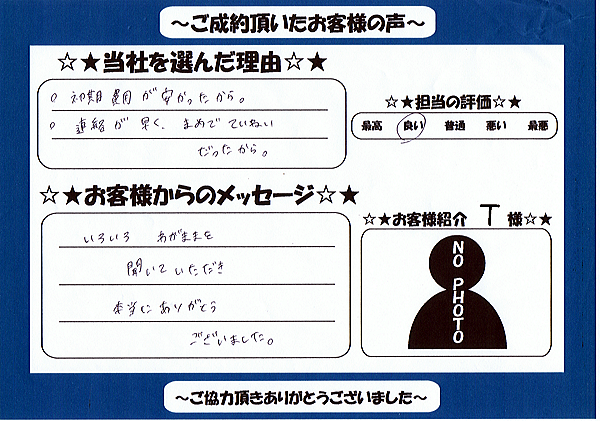 ～ご成約頂いたお客様の声～
☆★当社を選んだ理由☆★
○ 初期費用が安かったから。
○ 連絡が早く、まめでていねい
だったから。
☆★担当の評価☆★
最高 良い 普通 悪い 最悪
☆★お客様からのメッセージ☆★
いろいろ わがままを
聞いていただき
本当にありがとう
ございました。
☆★お客様紹介 T 様☆★
NO PHOTO
～ご協力頂きありがとうございました～